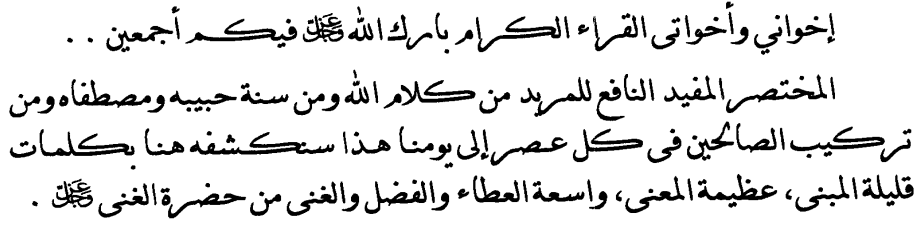 إخواني وأخواتى القراء الكرام بارك الله ﷿ فيكم أجمعين . .
المختصر المفيد النافع للمريد من كلام الله ومن سنة حبيبه ومصطفاه ومن
تركيب الصالحين فى كل عصر إلى يومنا هذا سنكشفه هنا بكلمات
قليلة المبنى، عظيمة المعنى، واسعة العطاء والفضل والغنى من حضرة الغنى ﷿ .